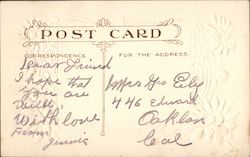 POST CARD
CORRESPONDENCE
FOR THE ADDRESS
Dear Friend
I hope that
you are
well
With love
From
Jennie
Mrs Geo
446 Edward
Oaklan
Cal